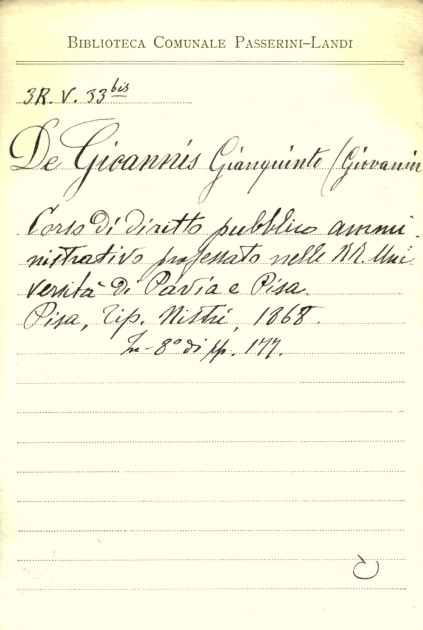 BIBLIOTECA COMUNALE PASSERINI-LANDI
3R. V. 33 bis
De Gioannis Gianquinto (Giovanni
Corso di diritto pubblico ammi-
nistrativo professato nelle RR. Uni-
versità di Pavia e Pisa.
Pisa, Tip. Nistri, 1868.
In-8° di pp. 177.